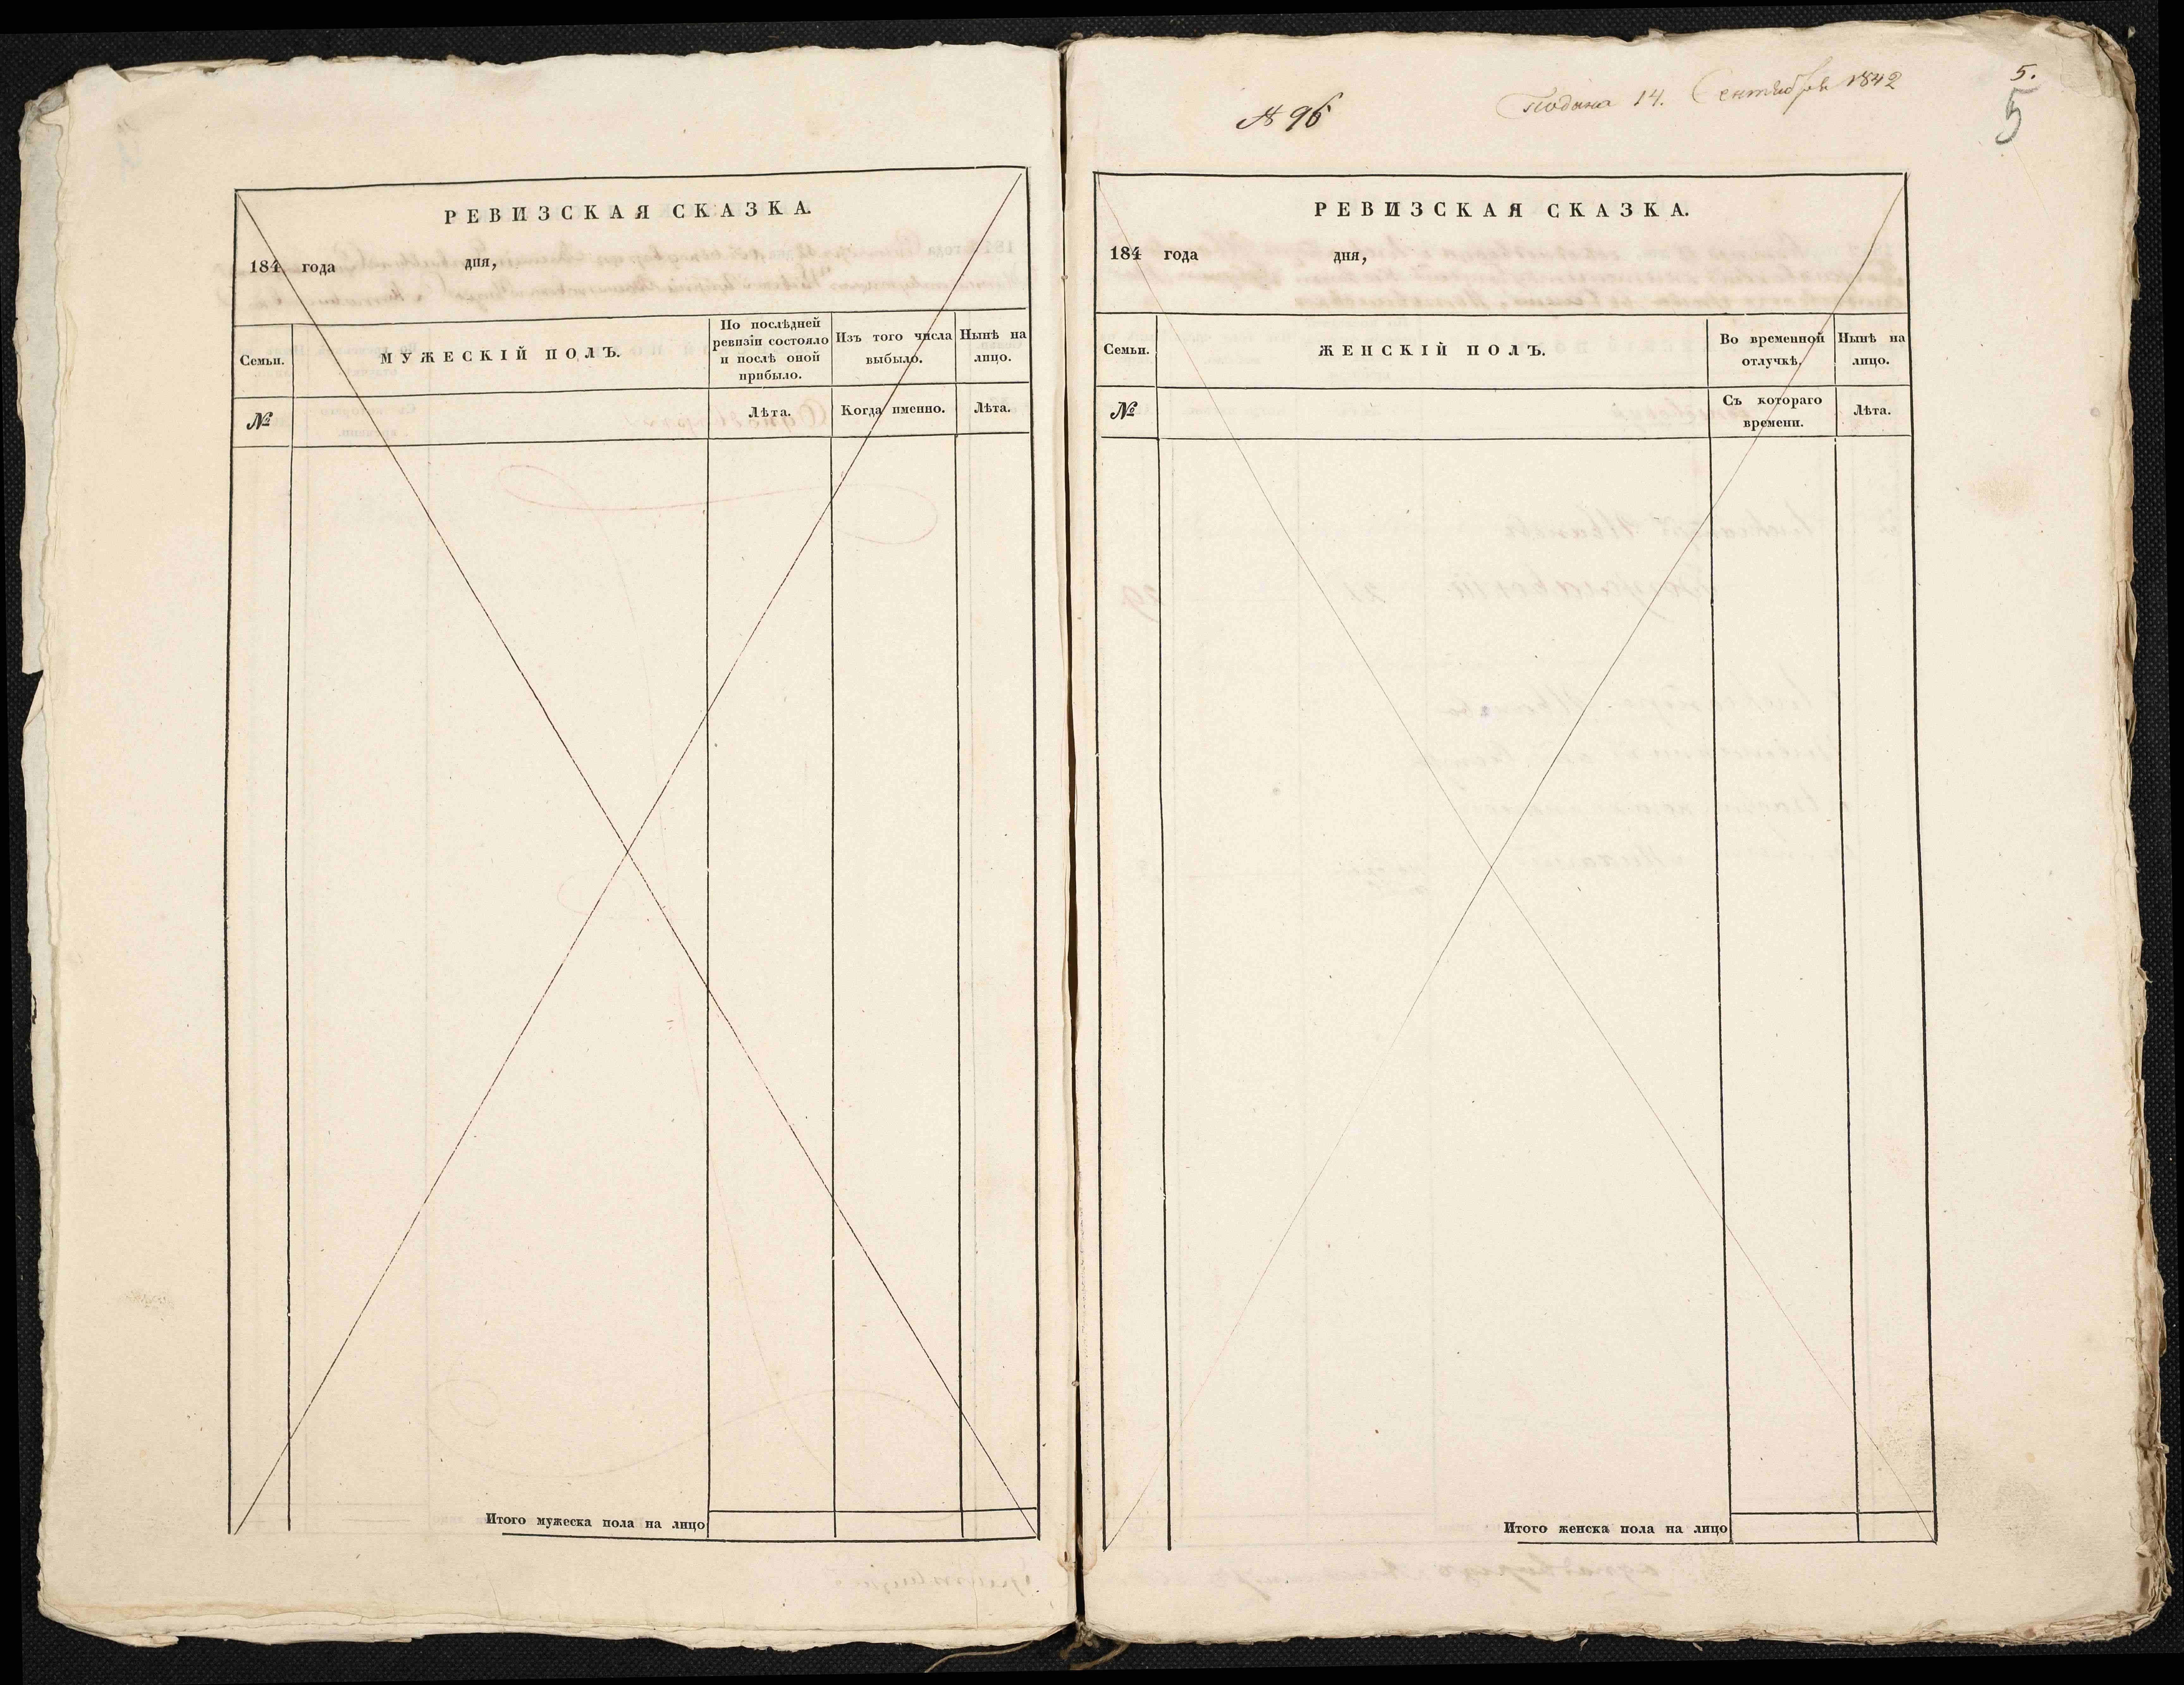 РЕВИЗСКАЯ СКАЗКА.
184 года дня,
Семьи.
МУЖЕСКІЙ ПОЛЪ.
По послѣдней
ревизіи состояло
и послѣ оной
прибыло.
Изъ того числа
выбыло.
Нынѣ на
лицо.
№
Лѣта.
Когда именно.
Лѣта.
Итого мужеска пола на лицо
№ 96
Подана 14. Сентября 1842
5.
5
РЕВИЗСКАЯ СКАЗКА.
184 года дня,
Семьи.
ЖЕНСКІЙ ПОЛЪ.
Во временной
отлучкѣ.
Нынѣ на
лицо.
№
Съ котораго
времени.
Лѣта.
Итого женска пола на лицо